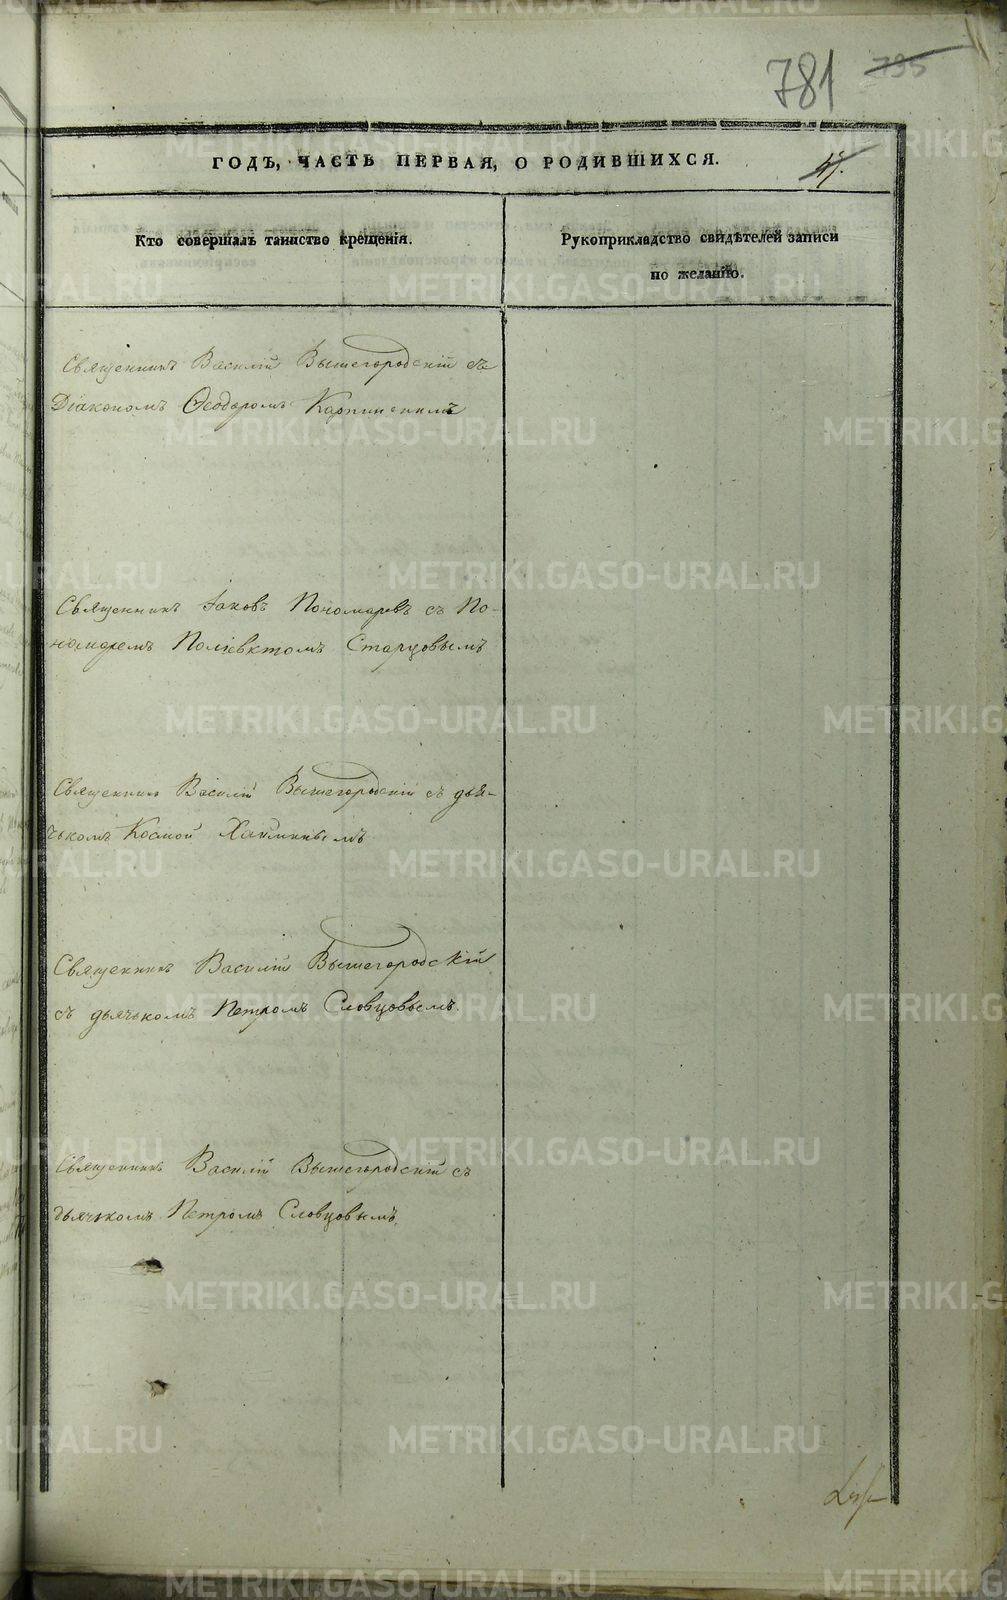 781 795
ГОДЪ, ЧАСТЬ ПЕРВАЯ, О РОДИВШИХСЯ.
Кто совершалъ таинство крещенія.
Рукоприкладство свидѣтелей записи
по желанію.
Священникъ Василій Вышегородскій съ
Діакономъ Ѳеодоромъ Карпинскимъ
Священникъ Іаковъ Пономаревъ съ По-
номаремъ Поліевктомъ Старцовымъ
Священникъ Василій Вышегородскій съ дья-
чькомъ Космой Хаминымъ
Священникъ Василій Вышегородскій
съ дьячькомъ Петромъ Словцовымъ.
Священникъ Василій Вышегородскій съ
дьячькомъ Петромъ Словцовымъ.
METRIKI.GASO-URAL.RU